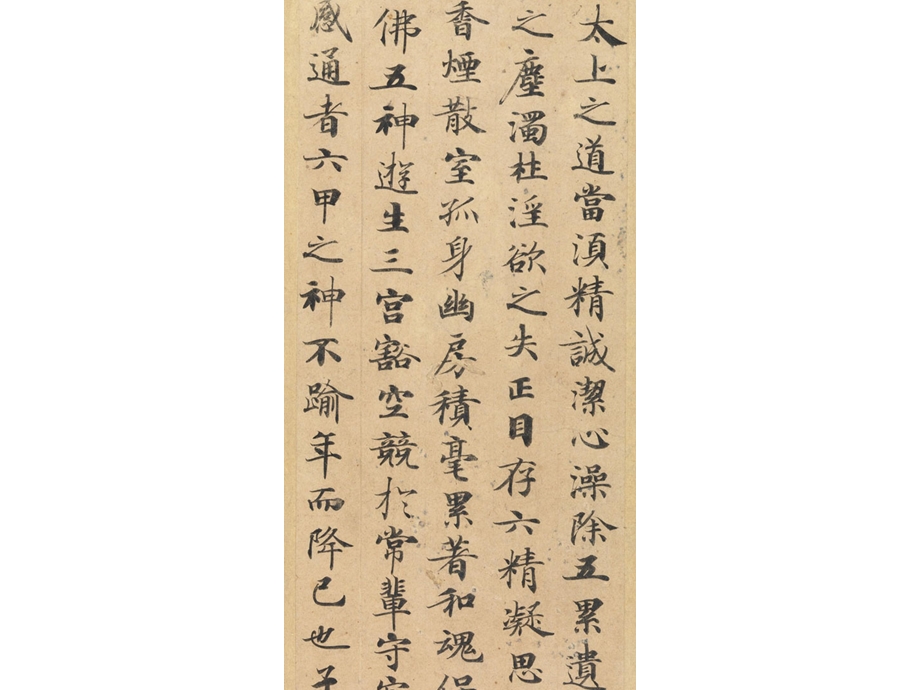 太上之道當湏精誠潔心澡除五累遺
之塵濁柱淫欲之失正目存六精凝思
香煙散室孤身幽房積毫累著和魂保
佛五神遊生三宫豁空競於常輩守寂
感通者六甲之神不踰年而降已也子